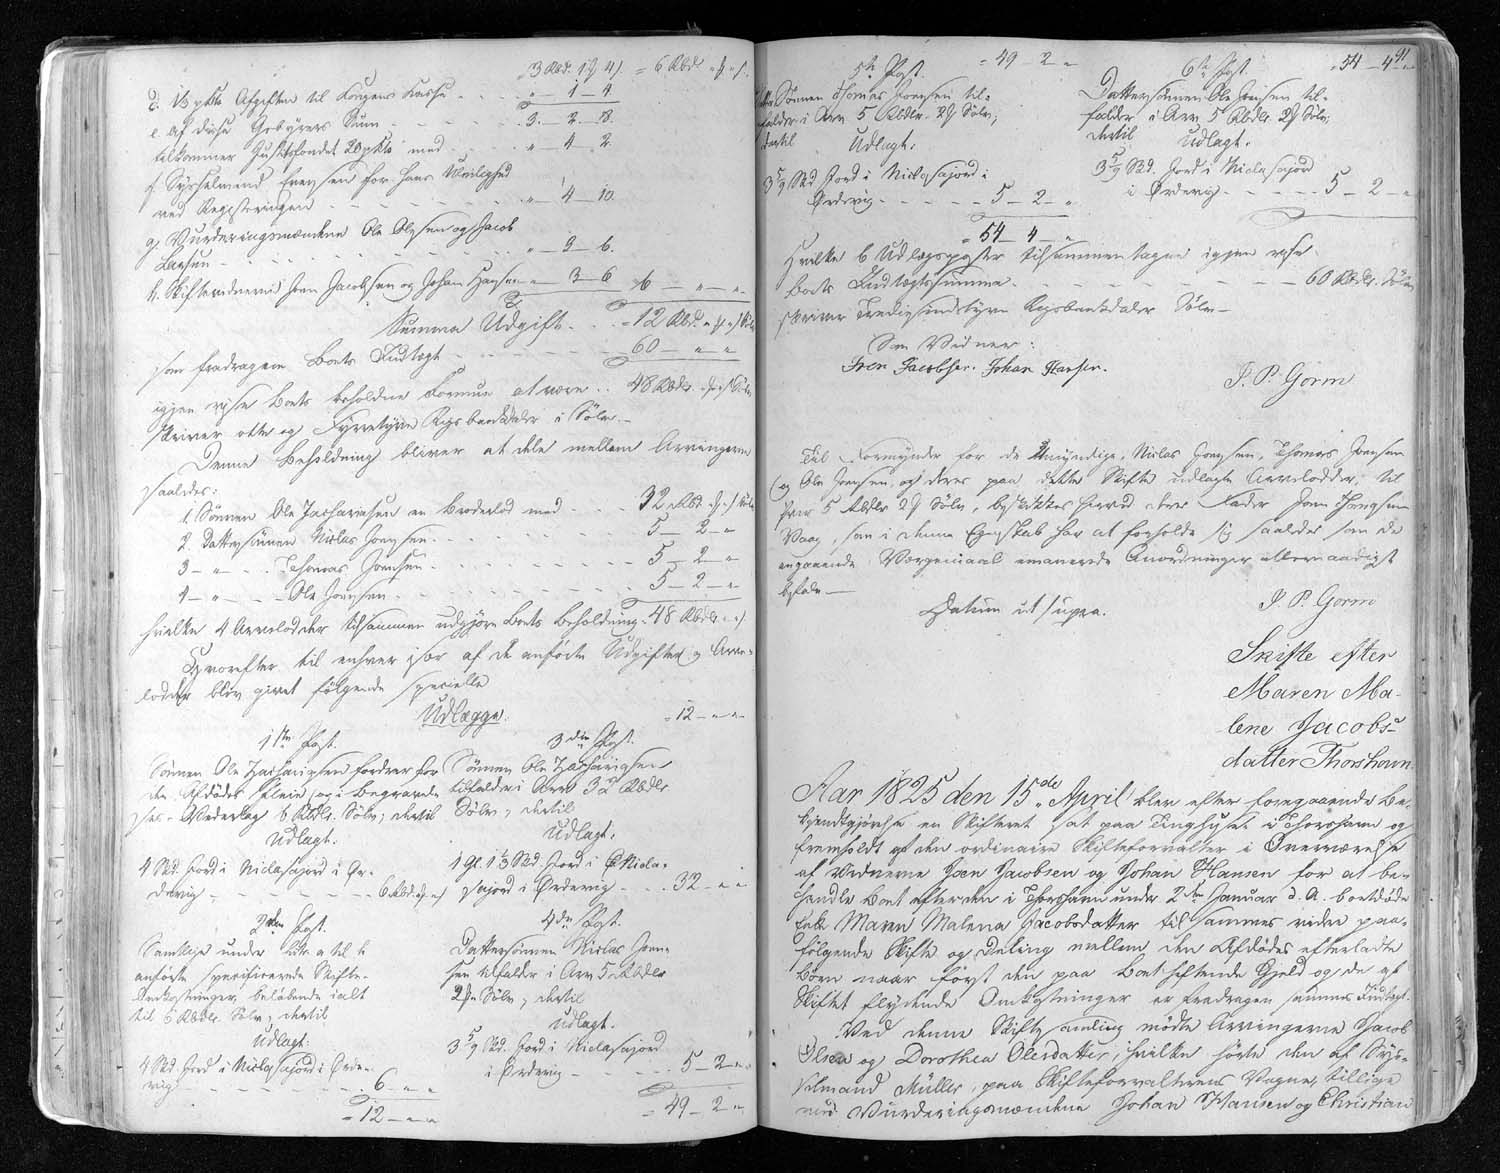 3 Rbd. 1 # 4 s. = 6 Rbd. " # " s.
d. ½ pCto Afgiften til Kongens Casse - - - " - 1 - 4.
3. - 2 - 8.
e. Af disse Gebyrers Sum
tilkommer Justitsfondet 20 pCto med - - - " - 4 - 2.
f. Sysselmand Evensen for hans Uleilighed
ved Registeringen - - - - - " - 4 - 10.
g. Vurderingsmændene Ole Olesen og Jacob
Larsen - - - - - " - 3 - 6.
h. Skiftevidnerne Joen Jacobsen og Johan Hansen - " - 3 - 6
6 - " - "
Summa Udgift - - = 12 Rbd. " # " s. Sølv
som fradragen Boets Indtægt - - - - 60 - " - "
igjen viser Boets beholdne Formue at være - - 48 Rbdr. " # " s. Sølv
skriver otte og Fyrretyve Rigsbankdaler i Sølv. -
Denne Beholdning bliver at dele mellem Arvingerne
saaledes:
1. Sønnen Ole Zachariasen en Broderlod med - - - 32 Rbd. " # " s. Sølv
2. Dattersønnen Niclas Joensen - - - - 5 - 2 - "
3 - " - - Thomas Joensen - - - - 5 - 2 - "
4 - " - - Ole Joensen - - - - 5 - 2 - "
hvilke 4 Arvelodder tilsammen udgjøre Boets Beholdning - 48 Rbdr. " - " s.
Hvorefter til enhver især af de anførte Udgifter og Arve-
lodder blev givet følgende specielle
Udlægge.
1ste Post.
Sønnen Ole Zachariasen fordrer for
den Afdødes Pleie og Begravelse
Vederlag 6 Rbdlr. Sølv, dertil
Udlagt.
4 Skd. Jord i Niclasajord i Ør-
devig - - - - 6 Rbd. " # " s
2den Post.
Samtlige under Litr. a til h
anførte specificerede Skifte-
Omkostninger, beløbende ialt
til 6 Rbdlr. Sølv, dertil
Udlagt:
4 Skd. Jord i Niclasajord i Ørde-
vig - - - - 6 - " - "
= 12 - " - "
= 12 - " - "
3die Post.
Sønnen Ole Zachariasen
tilfalder i Arv 32 Rbdlr
Sølv, dertil
Udlagt.
1 Gl. 1⅓ Skd. Jord i Nicla-
sajord i Ørdevig - - - 32 - " - "
4de Post.
Dattersønnen Niclas Joen-
sen tilfalder i Arv 5 Rbdlr
2 # Sølv, dertil
Udlagt.
3 5/9 Skd. Jord i Niclasajord
i Ørdevig - - - - 5 - 2 - "
= 49 - 2 - "
= 49 - 2 - "
5te Post.
Sønnen Thomas Joensen til-
falder i Arv 5 Rbdlr. 2 # Sølv,
dertil Udlagt.
3 5/9 Skd Jord i Niclasajord i
Ørdevig - - - - 5 - 2 - "
= 54 - 4 - "
91
54 - 4 - "
6te Post.
Dattersønnen Ole Joensen til-
falder i Arv 5 Rbdlr. 2 # Sølv,
dertil Udlagt.
3 5/9 Skd. Jord i Niclasajord
i Ørdevig - - - 5 - 2 - "
Hvilke 6 Udlægsposter tilsammentagne igjen vise
Boets Indtægtssumma - - - - - 60 Rbdlr. Sølv
skriver Tredsindstyve Rigsbankdaler Sølv -
Som Vidner:
Joen Jacobsen. Johan Hansen.
J. P. Gorm
Til Formynder for de Umyndige, Niclas Joensen, Thomas Joensen
og Ole Joensen, og deres paa dette Skifte udlagte Arvelodder, til
hver 5 Rbdlr 2 # Sølv, beskikkes herved deres Fader Joen
Vaag, som i denne Egenskab har at forholde sig saaledes som de
angaaende Værgemaal emanerede Anordninger allernaadigst
befale -
Datum ut supra.
J. P. Gorm
Skifte efter
Maren Ma-
lene Jacobs-
datter Thorshavn
Aar 1825 den 15de April blev efter foregaaende Be-
kjendtgjørelse en Skifteret sat paa Tinghuset i Thorshavn og
fremholdt af den ordinaire Skifteforvalter i Overværelse
af Vidnerne Joen Jacobsen og Johan Hansen for at be-
handle Boet efter den i Thorshavn under 2den Januar d. A. bortdøde
Enke Maren Malena Jacobsdatter til sammes videre paa-
følgende Skifte og Deling mellem den Afdødes efterladte
Børn naar først den paa Boet heftende Gjeld og de af
Skiftet flydende Omkostninger er fradragen sammes Indtægt.
Ved denne Skiftesamling mødte Arvingerne Jacob
Olsen og Dorothea Olesdatter, hvilke hørte den af Sys-
selmand Müller, paa Skifteforvalterens Vegne, tillige
med Vurderingsmændene Johan Hansen og Christian